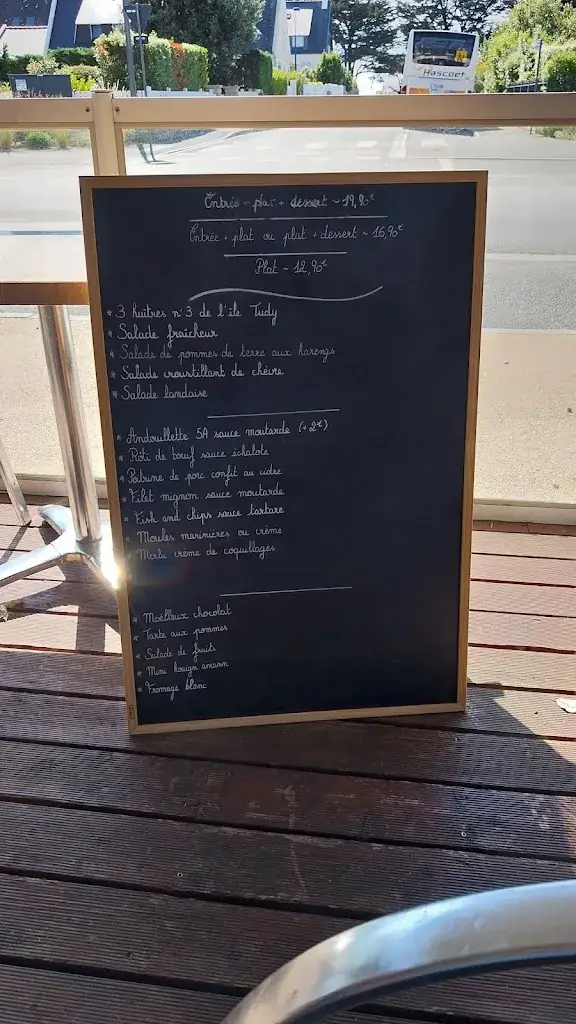 Hascoët
Entrée + plat + dessert ~ 19,90€
Entrée + plat ou plat + dessert ~ 16,90€
Plat ~ 12,90€
* 3 huîtres n°3 de l'île Tudy
* Salade fraîcheur
* Salade de pommes de terre aux harengs
* Salade croustillant de chèvre
* Salade landaise
* Andouillette 5A sauce moutarde (+2€)
* Rôti de bœuf sauce échalote
* Poitrine de porc confit au cidre
* Filet mignon sauce moutarde
* Fish and chips sauce tartare
* Moules marinières ou crème
* Merlu crème de coquillages
* Moëlleux chocolat
* Tarte aux pommes
* Salade de fruits
* Mini kouign amann
* Fromage blanc